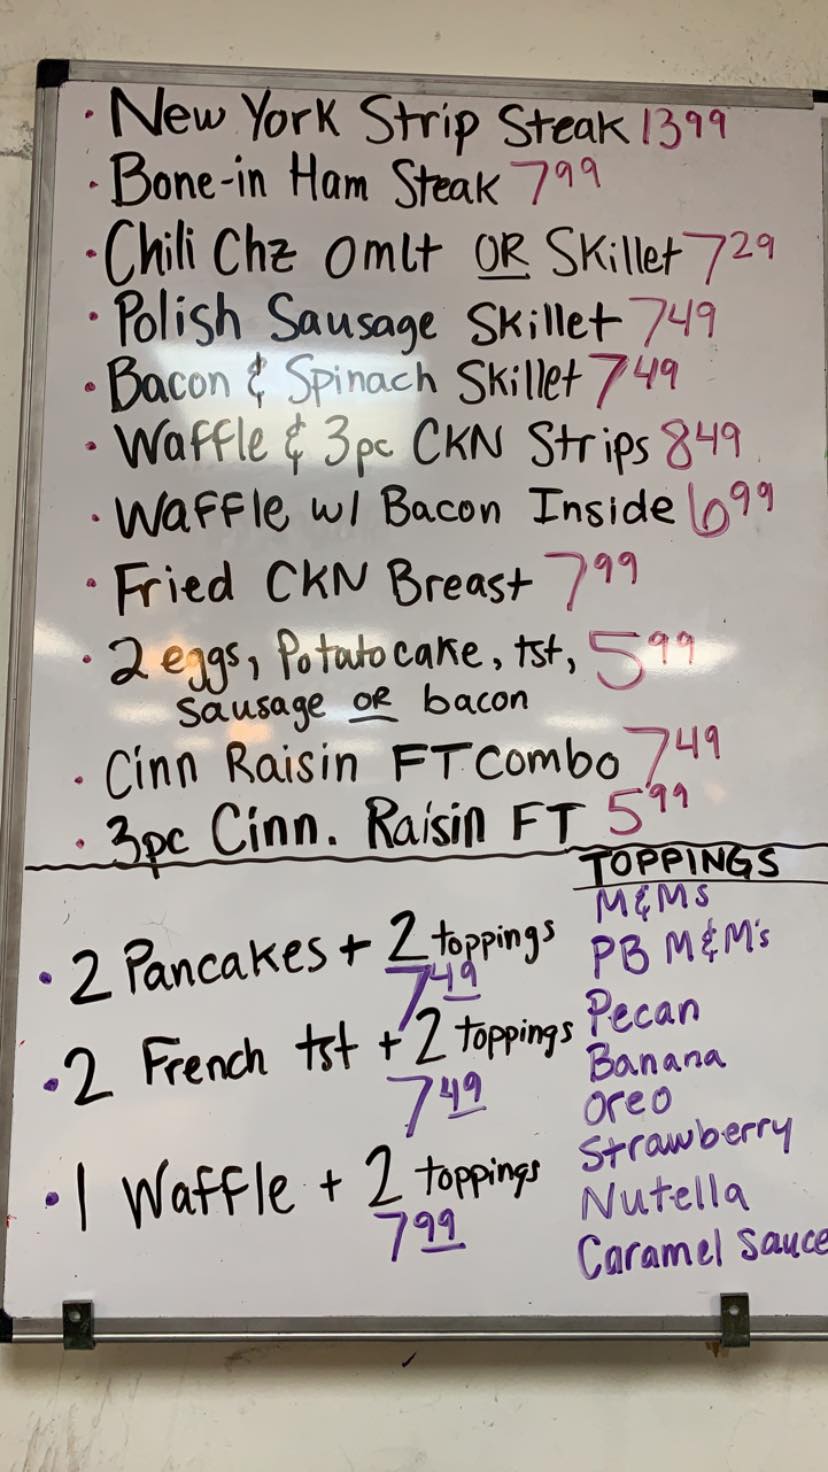 · New York Strip Steak 13 99
· Bone-in Ham Steak 7 99
· Chili Chz omlt OR Skillet 7 29
· Polish Sausage Skillet 7 49
· Bacon & Spinach Skillet 7 49
· Waffle & 3pc CKN Strips 8 49
· Waffle w/ Bacon Inside 6 99
· Fried CKN Breast 7 99
· 2 eggs, Potato cake, tst, 5 99
sausage or bacon
· Cinn Raisin FT combo 7 49
· 3pc Cinn. Raisin FT 5 99
· 2 Pancakes + 2 toppings
7 49
· 2 French tst + 2 toppings
7 49
· 1 Waffle + 2 toppings
7 99
TOPPINGS
M&Ms
PB M&M's
Pecan
Banana
Oreo
Strawberry
Nutella
Caramel Sauce